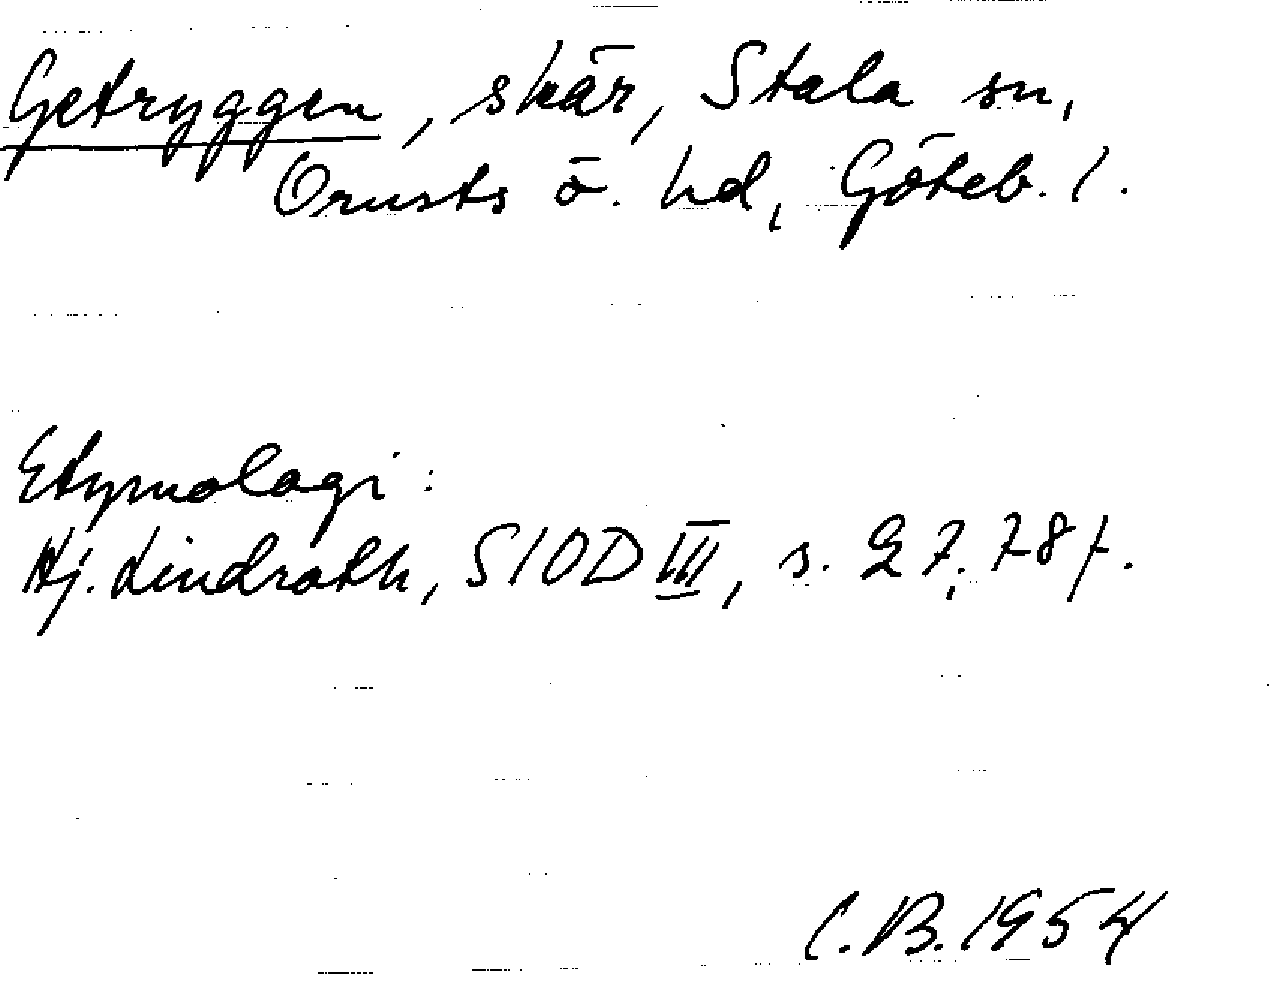 Getryggen, skär, Stala sn,
Orusts ö. hd, Göteb. l.
Etymologi:
Hj. Lindroth, SIOD III, s. 27, 78 f.
C.B. 1954